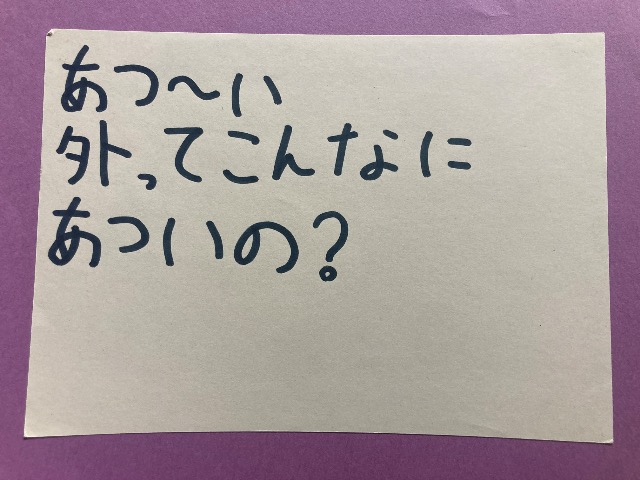 あつ〜い
外ってこんなに
あついの?